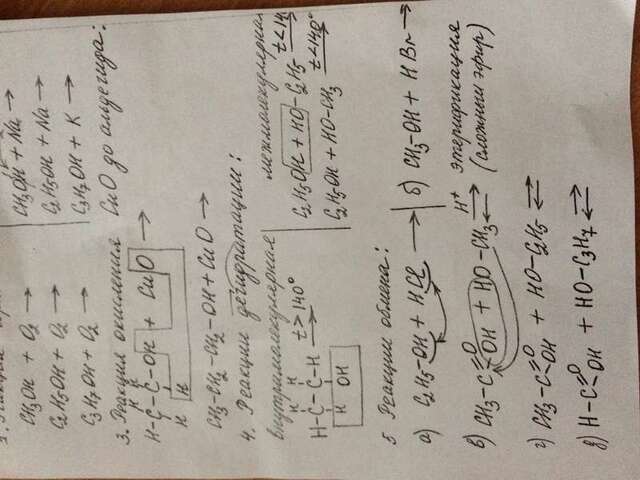 CH₃OH + O₂ →
C₂H₅OH + O₂ →
C₃H₇OH + O₂ →
CH₃OH + Na →
C₂H₅OH + Na →
C₃H₇OH + K →
3. Реакция окисления CuO до альдегида:
H H
H-C-C-OH + CuO →
H H
CH₃-CH₂-CH₂-OH + CuO →
4. Реакции дегидратации:
внутримолекулярная
H H
H-C-C-H t>140° →
OH
межмолекулярная
C₂H₅OH + HO-C₂H₅ t<14
C₂H₅OH + HO-CH₃ t<140° →
5 Реакции обмена:
а) C₂H₅-OH + HCl →
б) CH₃-OH + HBr →
в) CH₃-C=O OH + HO-CH₃ H⁺ ⇌ этерификация
(сложный эфир)
г) CH₃-C=O OH + HO-C₂H₅ ⇌
д) H-C=O OH + HO-C₃H₇ ⇌